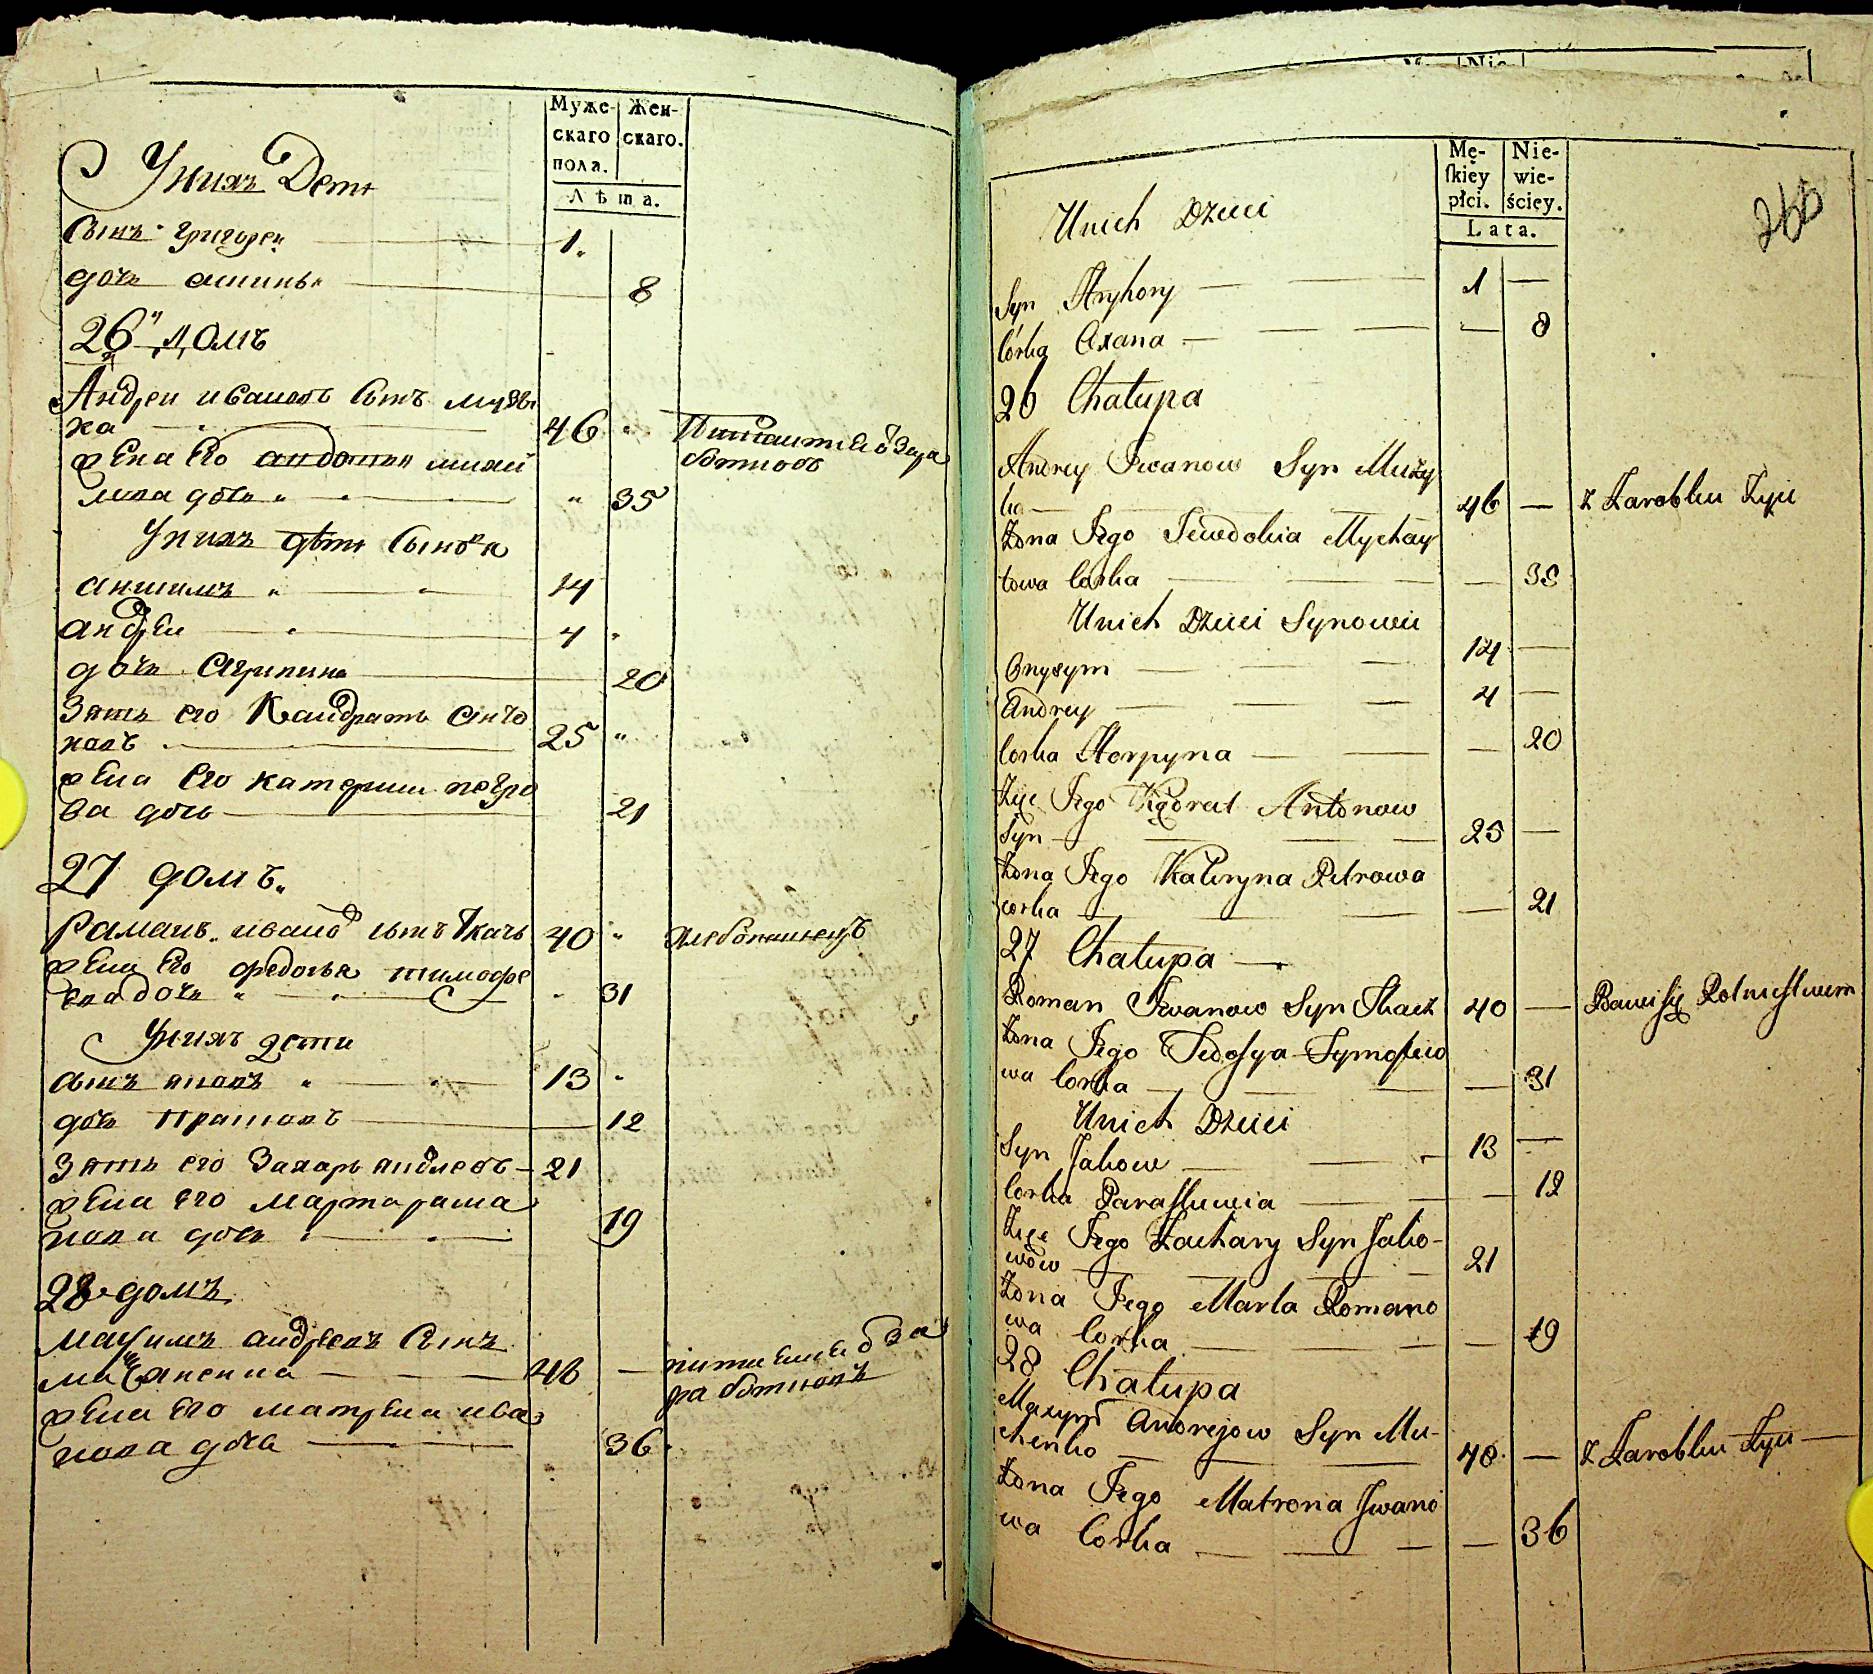 Муже-
скаго
пола.
Жен-
скаго.
Лѣта.
Униих Дети
Сынъ Григорей 1.
дочь 8
26 домъ
Андреи ивановъ Сынъ мужы
ка 46 Питаитца Зара
ботковъ
жена Его михай
лова дочь 35
Униих дѣти Сыновя
анисимъ 14
андреи 4
дочь Агрипина 20
Зять его Кандрать Анто
новъ 25
жена Его катерина петро
ва дочь 21
27 домъ.
Раманъ ивановъ сынъ Ткачъ 40 хлебопашецъ
жена Его федосья тимофе
ева дочь 31
Униих дети
сынъ яковъ 13
дочь 12
Зять его Захаръ яковлевъ 21
жена его марта рама
нова дочь 19
28 домъ
Максимъ андреевъ Сынъ
48 за
работковъ
жена Его матрена ива
нова дочь 36
Mę-
ſkiey
płci.
Nie-
wie-
ściey.
Lata.
Unich Dzieci
Syn Hryhory 1
Córka Oxana 8
26 Chałupa
Andrey Iwanow Syn Mużỳ
ka 46 z Zarobku Żyie
Żona Jego Jewdokia Mychay
łowa Corka 35
Unich Dzieci Synowie
Onysym 14
Andrey 4
Corka Horpyna 20
Zięć Jego Kądrat Antonow
Syn 25
Żona Jego Kateryna Petrowa
corka 21
27 Chałupa
Roman Iwanow Syn Tkacz 40 Bawi się Rolnictwem
Żona Jego Fedosya Tymofeio
wa Corka 31
Unich Dzieci
Syn Jakow 13
Corka Paraskiewia 12
Zięć Jego Zachary Syn Jako-
wow 21
Żona Jego Marta Romano
wa Corka 19
28 Chałupa
Maxym Andrejow Syn Mu-
chenko 48 z Zarobku Żyie
Żona Jego Matrona Jwano
wa Corka 36